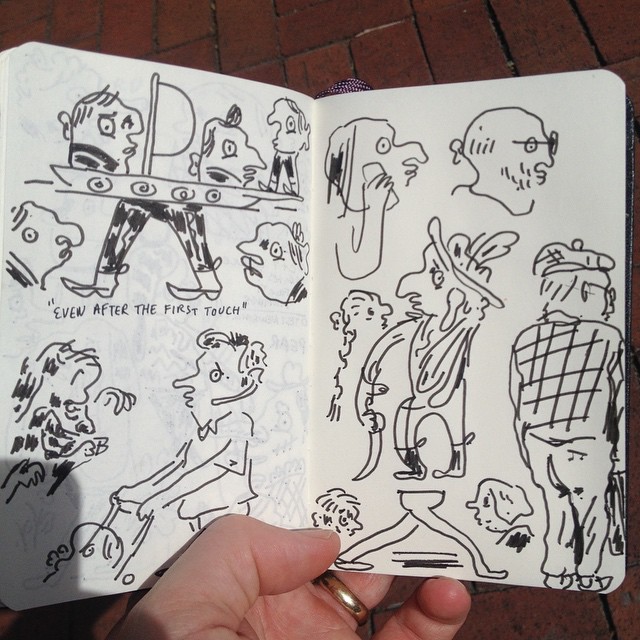 "EVEN AFTER THE FIRST TOUCH"